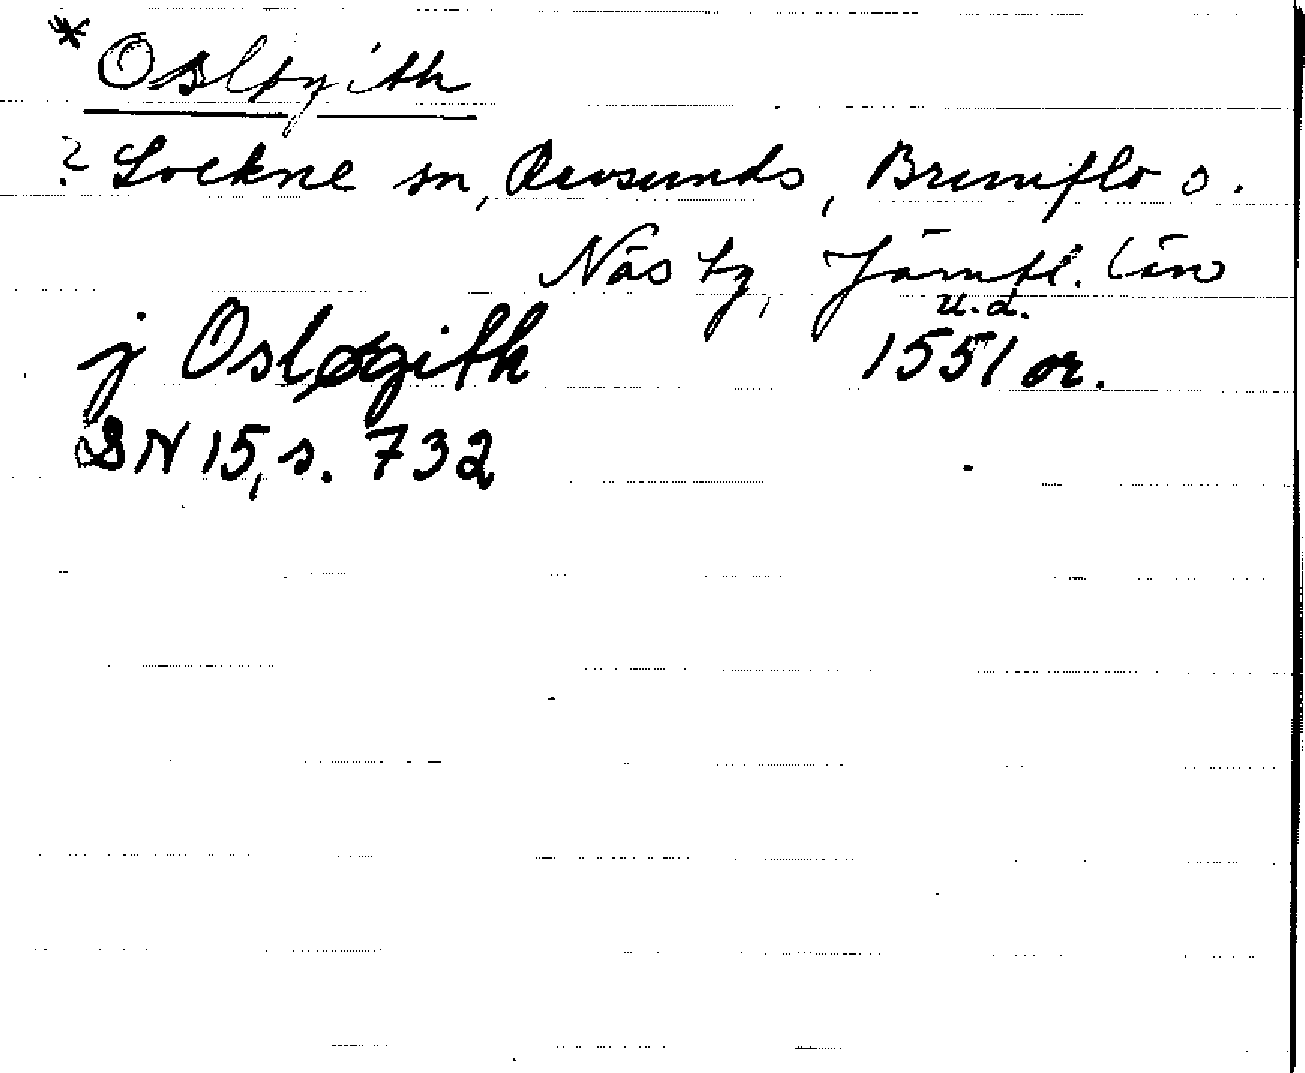 * Osløgith
? Lockne sn, Revsunds, Brunflo o.
Näs tg, Jämtl. län
u.a.
j Osløgith 1551 or.
DN 15, s. 732